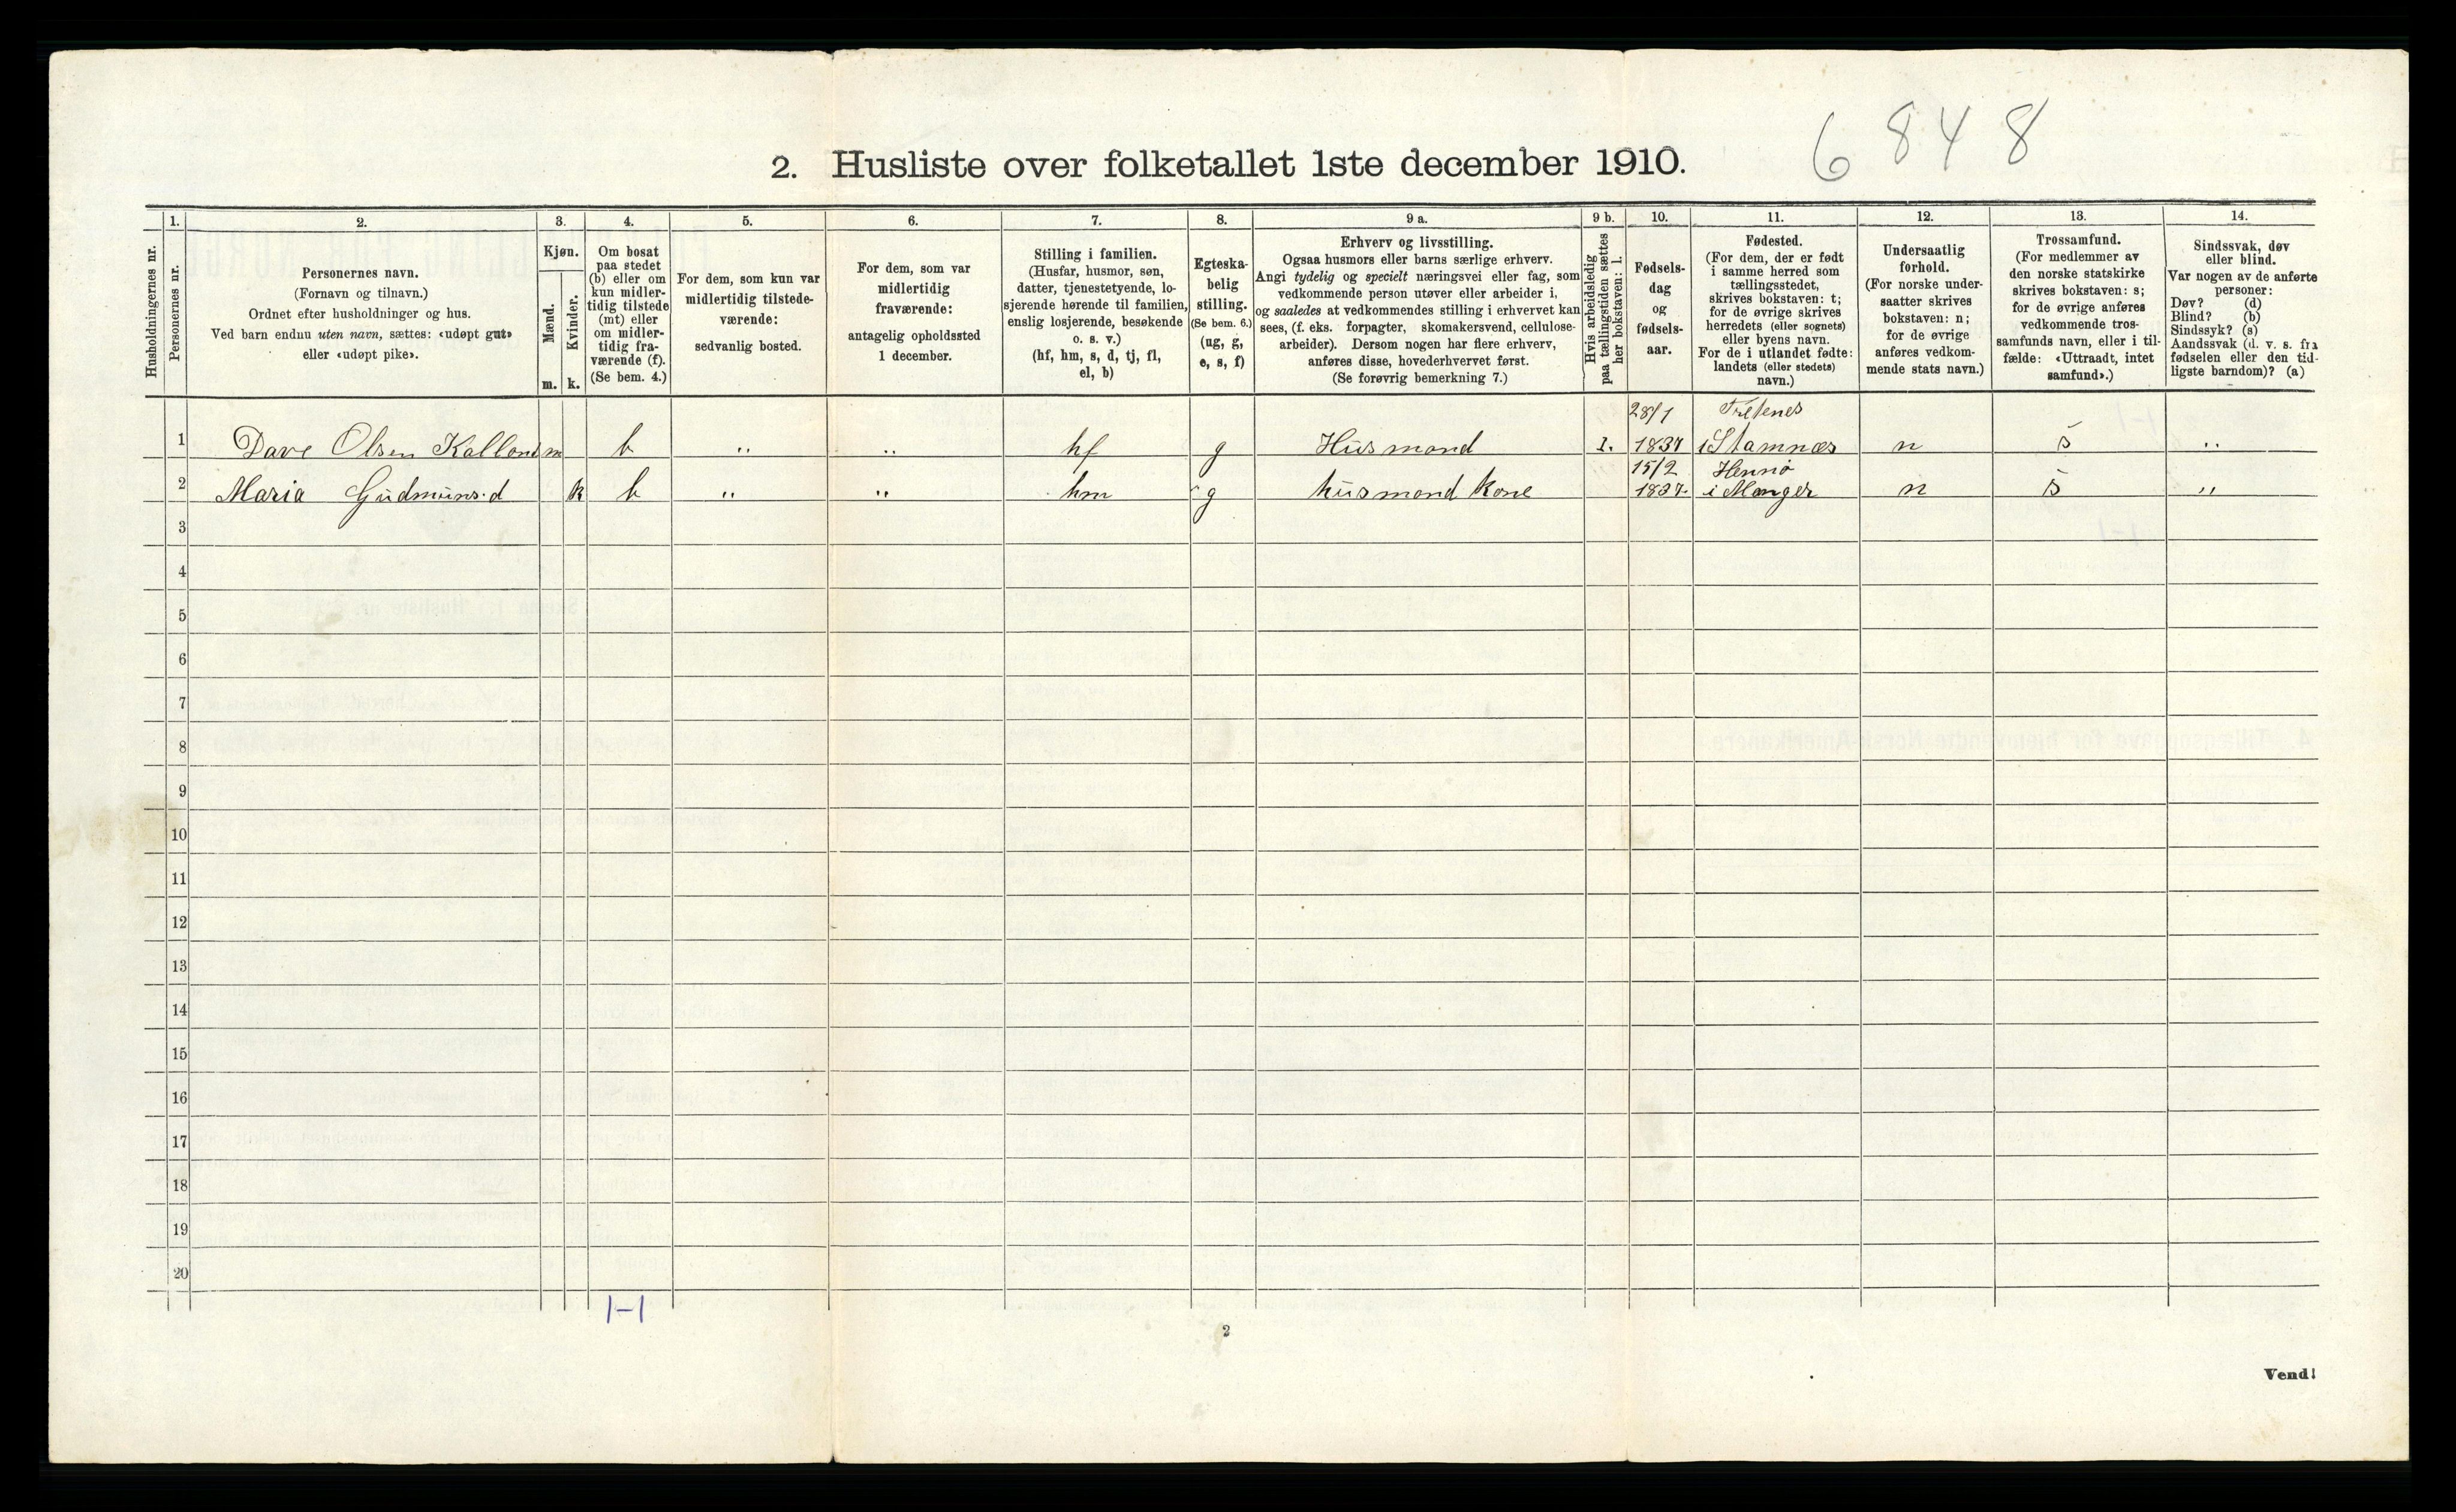 6848
2. Husliste over folketallet 1ste december 1910.
Husholdningernes nr.
1.
Personernes nr.
2.
Personernes navn.
(Fornavn og tilnavn.)
Ordnet efter husholdninger og hus.
Ved barn endnu uten navn, sættes: «udøpt gut»
eller «udøpt pike».
3.
Kjøn.
Mænd.
m.
Kvinder.
k.
4.
Om bosat
paa stedet
(b) eller om
kun midler-
tidig tilstede
(mt) eller
om midler-
tidig fra-
værende (f).
(Se bem. 4.)
5.
For dem, som kun var
midlertidig tilstede-
værende:
sedvanlig bosted.
6.
For dem, som var
midlertidig
fraværende:
antagelig opholdssted
1 december.
7.
Stilling i familien.
(Husfar, husmor, søn,
datter, tjenestetyende, lo-
sjerende hørende til familien,
enslig losjerende, besøkende
o. s. v.)
(hf, hm, s, d, tj, fl,
el, b)
8.
Egteska-
belig
stilling.
(Se bem. 6.)
(ug, g,
e, s, f)
9 a.
Erhverv og livsstilling.
Ogsaa husmors eller barns særlige erhverv.
Angi tydelig og specielt næringsvei eller fag, som
vedkommende person utøver eller arbeider i,
og saaledes at vedkommendes stilling i erhvervet kan
sees, (f. eks. forpagter, skomakersvend, cellulose-
arbeider). Dersom nogen har flere erhverv,
anføres disse, hovederhvervet først.
(Se forøvrig bemerkning 7.)
9 b.
Hvis arbeidsledig
paa tællingstiden sættes
her bokstaven: l.
10.
Fødsels-
dag
og
fødsels-
aar.
11.
Fødested.
(For dem, der er født
i samme herred som
tællingsstedet,
skrives bokstaven: t;
for de øvrige skrives
herredets (eller sognets)
eller byens navn.
For de i utlandet fødte:
landets (eller stedets)
navn.)
12.
Undersaatlig
forhold.
(For norske under-
saatter skrives
bokstaven: n;
for de øvrige
anføres vedkom-
mende stats navn.)
13.
Trossamfund.
(For medlemmer av
den norske statskirke
skrives bokstaven: s;
for de øvrige anføres
vedkommende tros-
samfunds navn, eller i til-
fælde: «Uttraadt, intet
samfund».)
14.
Sindssvak, døv
eller blind.
Var nogen av de anførte
personer:
Døv? (d)
Blind? (b)
Sindssyk? (s)
Aandssvak (d. v. s. fra
fødselen eller den tid-
ligste barndom)? (a)
28/1
1 Dave Olsen m b " " hf g Husmand 1837 i Stamnæs n s "
15/2 Hennø
2 Maria Gudmuns.d k b " " hm g husmand kone 1837 i Manger n s "
3
4
5
6
7
8
9
10
11
12
13
14
15
16
17
18
19
20
1-1
2
Vend!